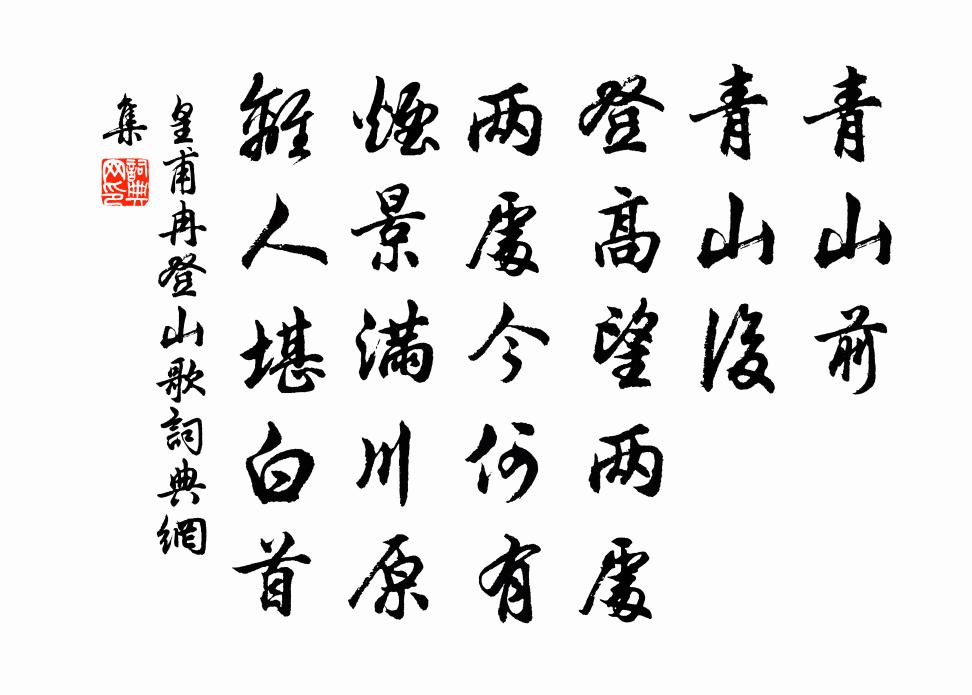 青山前
青山後
登高望兩處
兩處今何有
煙景滿川原
離人堪白首
皇甫冉登山歌詞典網
集
詞典
网印